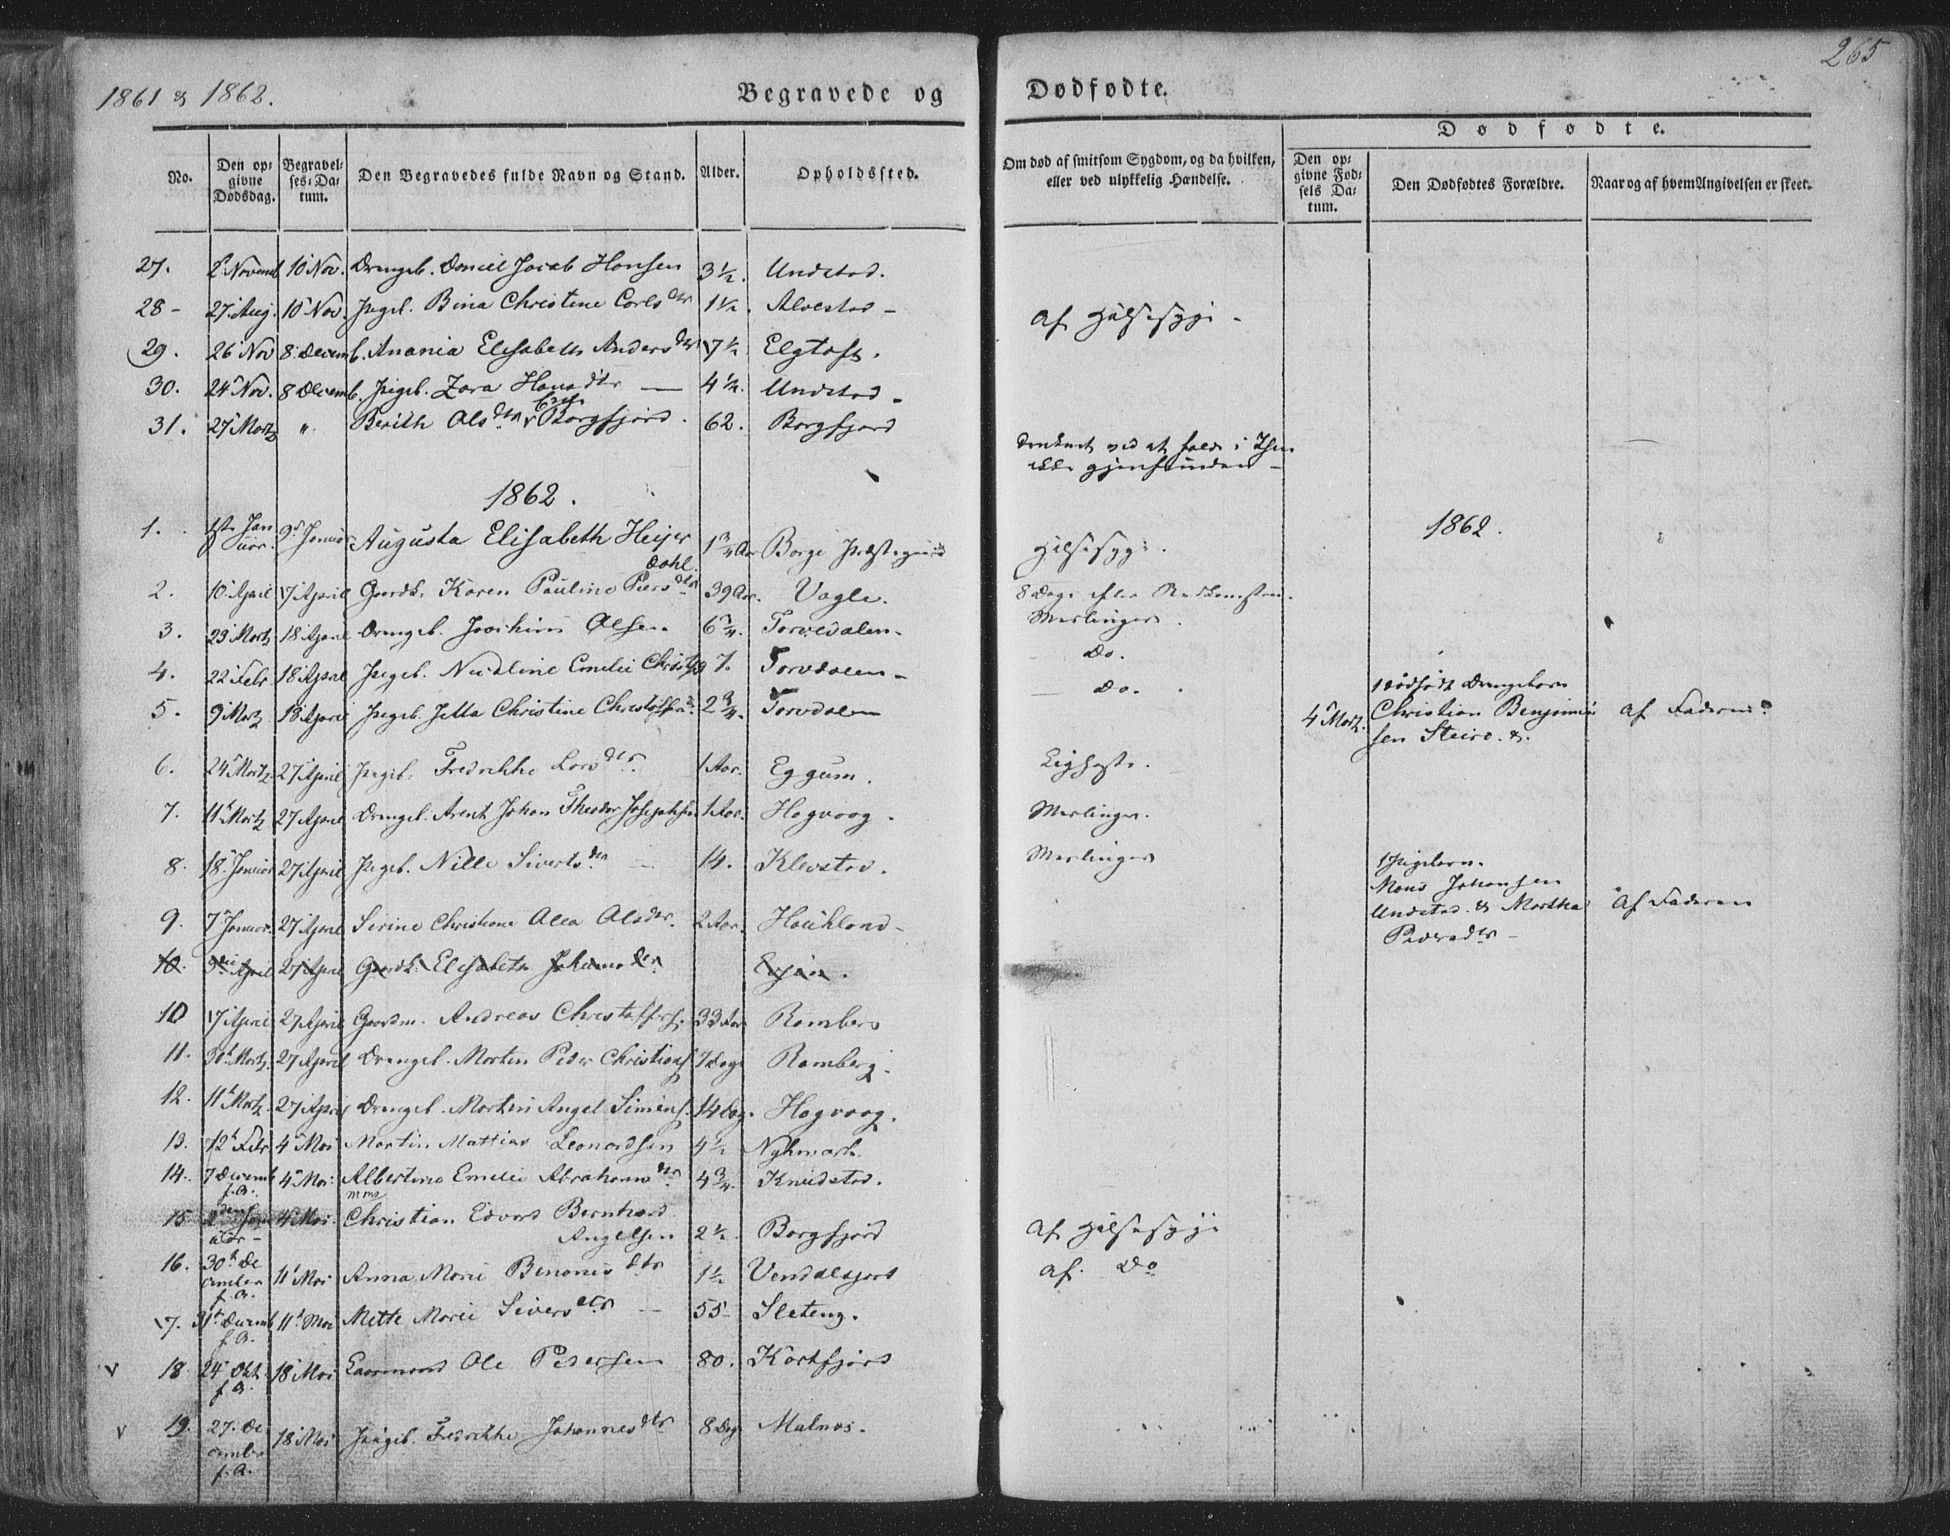 1861 & 1862.
Begravede og
Dødfødte.
265
No.
Den opgivne Dødsdag.
Begravelses-Datum.
Den Begravedes fulde Navn og Stand.
Alder.
Opholdssted.
Om død af smitsom Sygdom, og da hvilken, eller ved ulykkelig Hændelse.
Dødfødte.
Den opgivne Fødsels Datum.
Den Dødfødtes Forældre.
Naar og af hvem Angivelsen er skeet.
27. 2 Novemb 10 Nov. Drengeb. Daniel Jacob Hansen 3½. Undstad.
28 - 27 Aug. 10 Nov. Pigeb. Bina Christine Carlsdtr 1½. Alvestad - af Halsesyge -
29. 26 Nov 8 Decemb. Anania Elisabeth Andersdtr 7½ Elgtoft.
30. 24 Nov. 8 Decemb. Pigeb. Zara Hansdtr — 4½. Undstad -
31. 27 Martz " Berith Olsdtr Borgfjord. 62. Borgfjord
druknet ved at falde i Isen
ikke gjenfunden -
1862.
1862.
1. 1ste Januar 9 Januar Augusta Elisabeth Heijer Dahl. 1¾ Aar Borge Præstegaard Halsesyge.
2. 10 April 17 April Gaardk. Karen Pauline Peersdtr 39 Aar. Vagle. 8 Dage efter Nedkomsten.
3. 23 Martz 18 April Drengeb. Joachim Olsen 6¾. Torvdalen - Meslinger.
4. 22 Febr 18 April Pigeb. Nicoline Emelie 7. Torvdalen - Do.
5. 9 Martz 18 April Pigeb. Jetta Christine 2¾. Torvdalen Do.
4 Martz.
1 dødfødt Drengebarn
Christian Benjamin
sen Steiro. &.
af Faderen
6. 24 Martz 27 April Pigeb. Fredrikke Larsdtr. 1 Aar. Eggum.
7. 11 Martz 27 April Drengeb. Arent Johan Theodor Josephsen 1 Aar. Hagvaag. Meslinger.
8. 18 Januar 27 April Pigeb. Nille Sivertsdtr 14. Klevstad. Meslinger
1 Pigebarn.
Mons Johansen
Undstad & Martha
Pedersdtr -
af Faderen
9. 7 Januar. 27 April Sirine Christiane Olea Olsdtr. 2 Aar. Haukland -
10. April 27 April Gaardk. Elisabeth Johansdtr
10 17 April 27 April Gaardm. Andreas Christoffers. 33 Aar Ramberg
11. 30 Martz. 27 April Drengeb. Morten Peder Christians. 7 Dage Ramberg.
12. 11 Martz. 27 April Drengeb. Martin Angel Simens. 14 Dag. Hagvaag.
13. 12 Febr 4 Mai Martin Mattias Leonardsen 4½
14. 7 Decemb f.A. 4 Mai Albertine Emelie Abrahamsdtr 4¾. Knudstad.
15 2den Januar - 4 Mai. Christian Edvard Bernhard Angelsen 2½. Borgfjord af Halsesyge
16. 30 December f.A. 11 Mai Anna Marie Benonisdtr 1½ Vendalsjord af. Do
17. 31 Decemb f.A. 11 Mai Mette Marie Siversdtr — 55- Sleteng.
v 18 24 Okt. f.A. 18 Mai Ole Pedersen 80. Kortfjord
v 19. 27 December f.A. 18 Mai Pigeb. Fredrikke Johannesdtr 8 Dag Malnes.